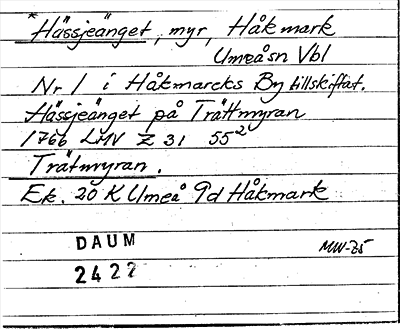 *Hässjeänget, myr, Håkmark
Umeåsn Vbl
Nr 1 i Håkmarcks By tillskiftat.
Hässjeänget på Trättmyran
1766 LMV Z 31 55²
Trätmyran.
Ek. 20 K Umeå 9d Håkmark
DAUM
2422
MW-75